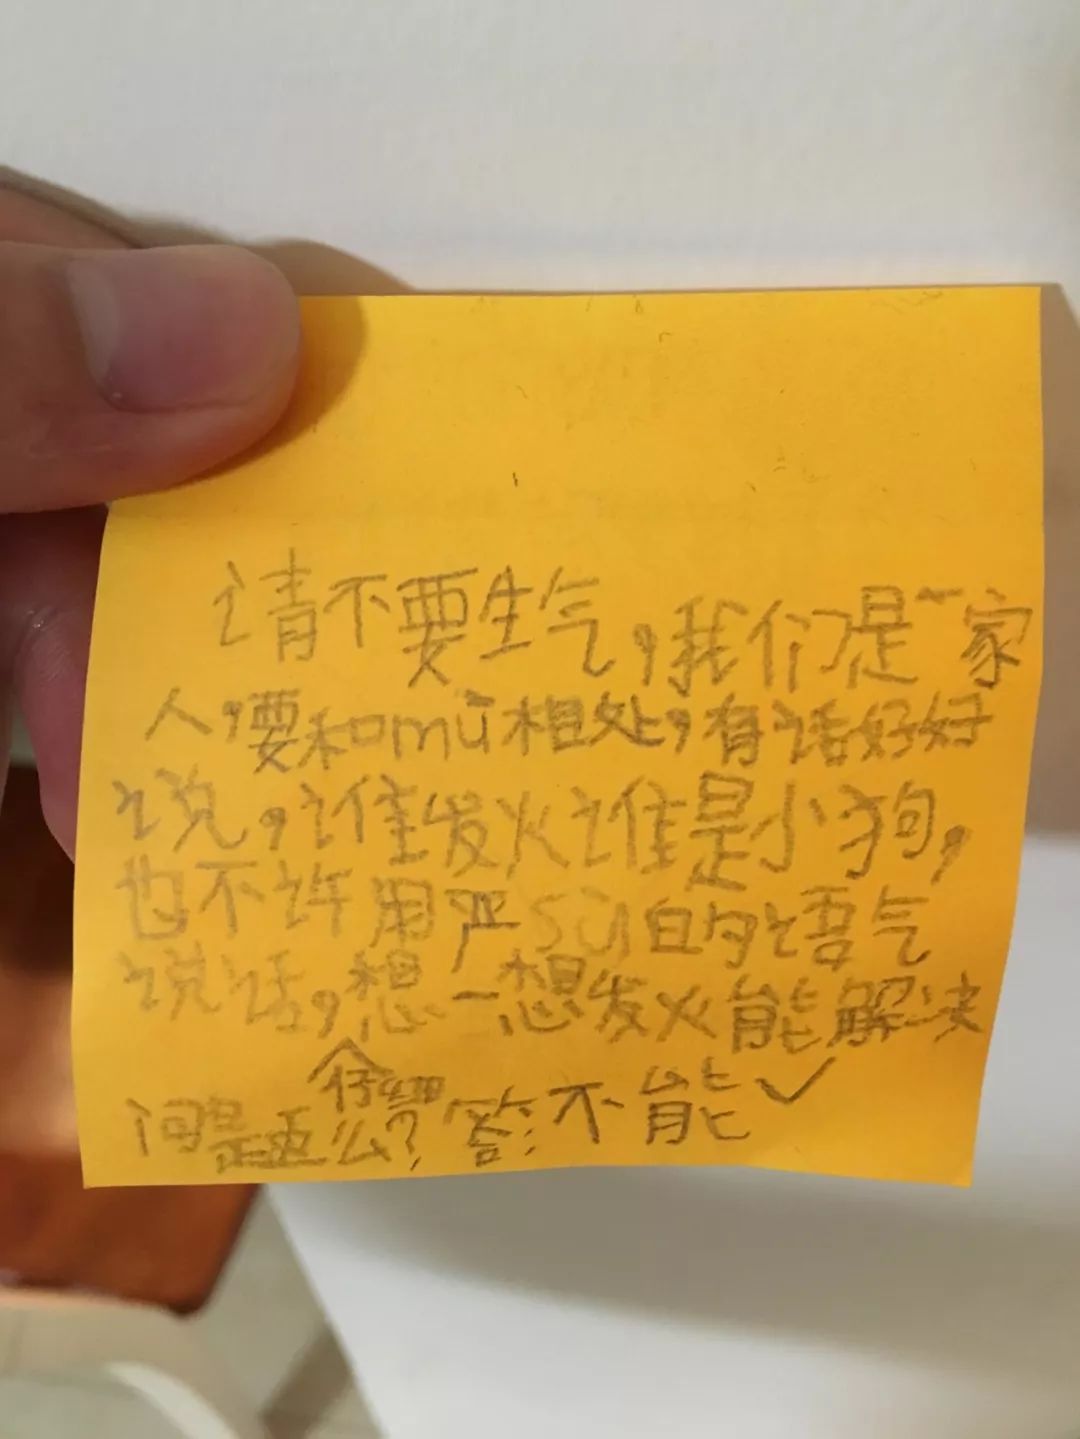 请不要生气，我们是一家
人，要和mù相处，有话好好
说，谁发火谁是小狗，
也不许用严sù的语气
说话，想一想发火能解决
仔细
问题么？答：不能✓